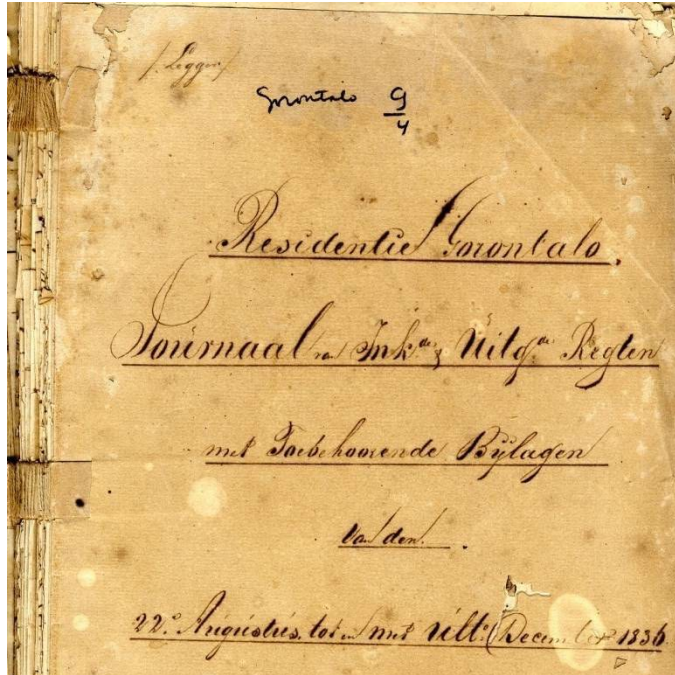 /: Legger /
Gorontalo G/4
Residentie Gorontalo.
Journaal van Ink.de & Uitg.de Regten
met Toebehoorende Bijlagen
Van den.
22.e Augustus tot en met Ult.o December 1836